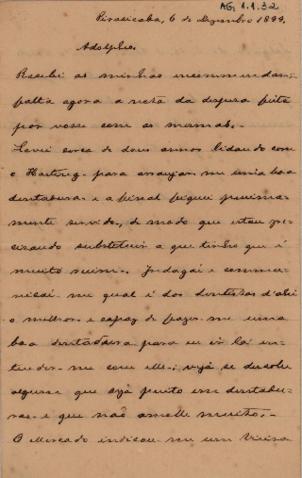 AG 1.1.32
Piracicaba, 6 de Dezembro 1899.
Adolpho.
Recebi as minhas encommendas
falta agora a nota da despeza feita
por vosse com as mesmas.
Levei cerca de dous annos lidando com
o Hartung para arranjar-me uma boa
dentadura e a final fiquei pessima-
mente servido, de modo que estou pre-
cizando substituir a que tenho que é
muito ruim. Indagai e commu-
nicai-me qual é dos dentistas d'ahi
o melhor e capaz de fazer-me uma
boa dentadura para eu ir lá en-
tender-me com elle; veja se descobre
algum que seja perito em dentadu-
ras e que não amolle muito.
O Mercado indicou-me um Vieira